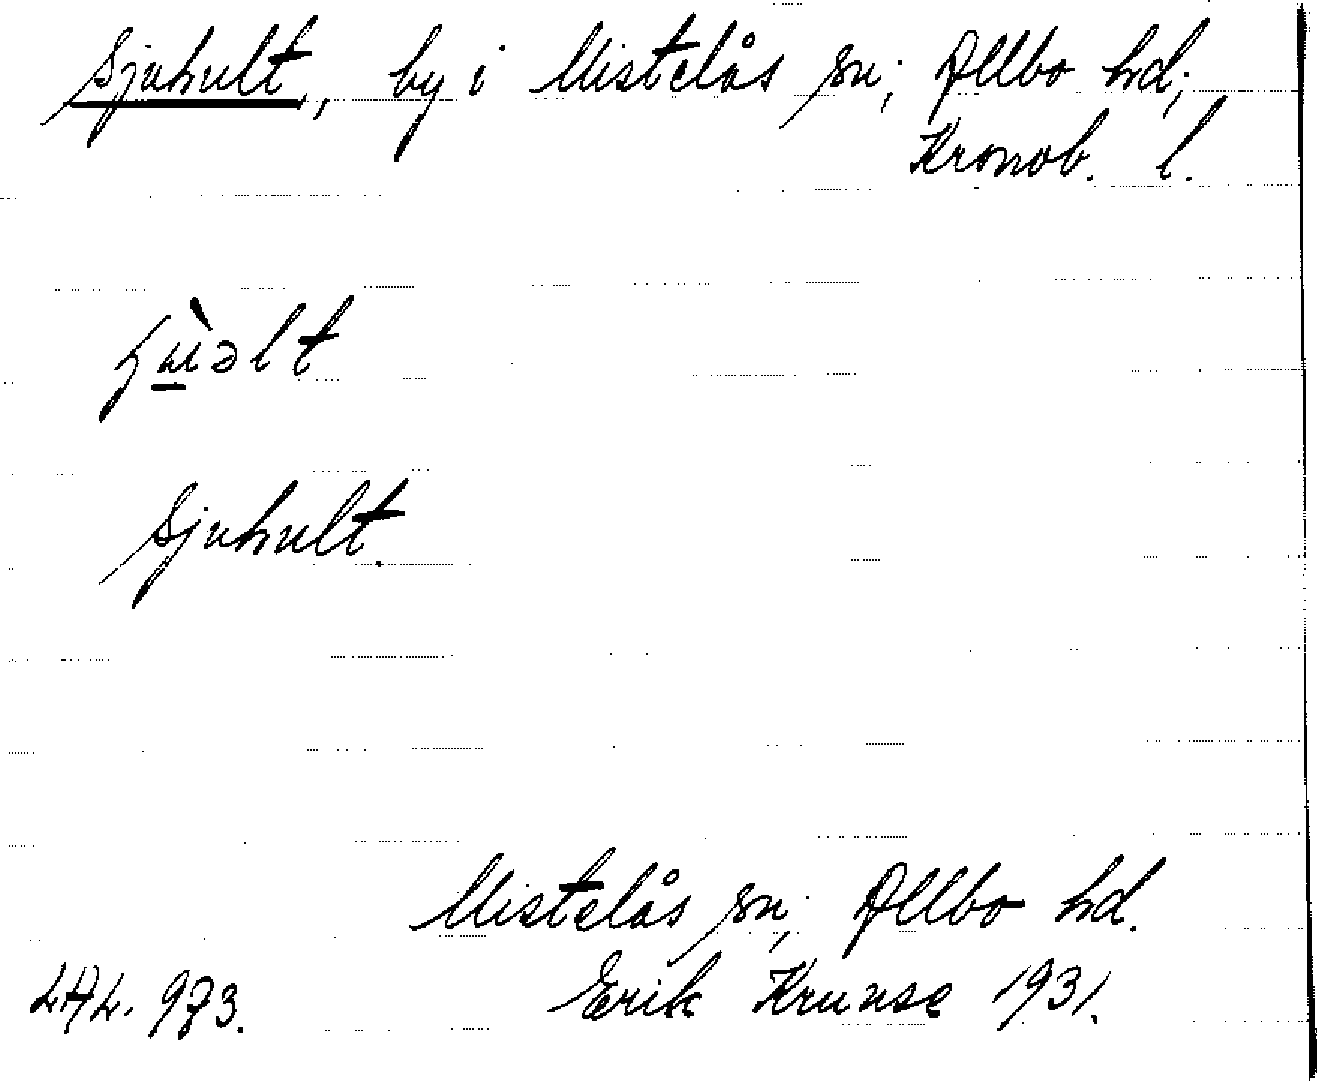 Sjuhult, by i Mistelås sn; Allbo hd;
Kronob. l.
Sjuhult.
Mistelås sn; Allbo hd.
Erik Krunse 1931.
973.